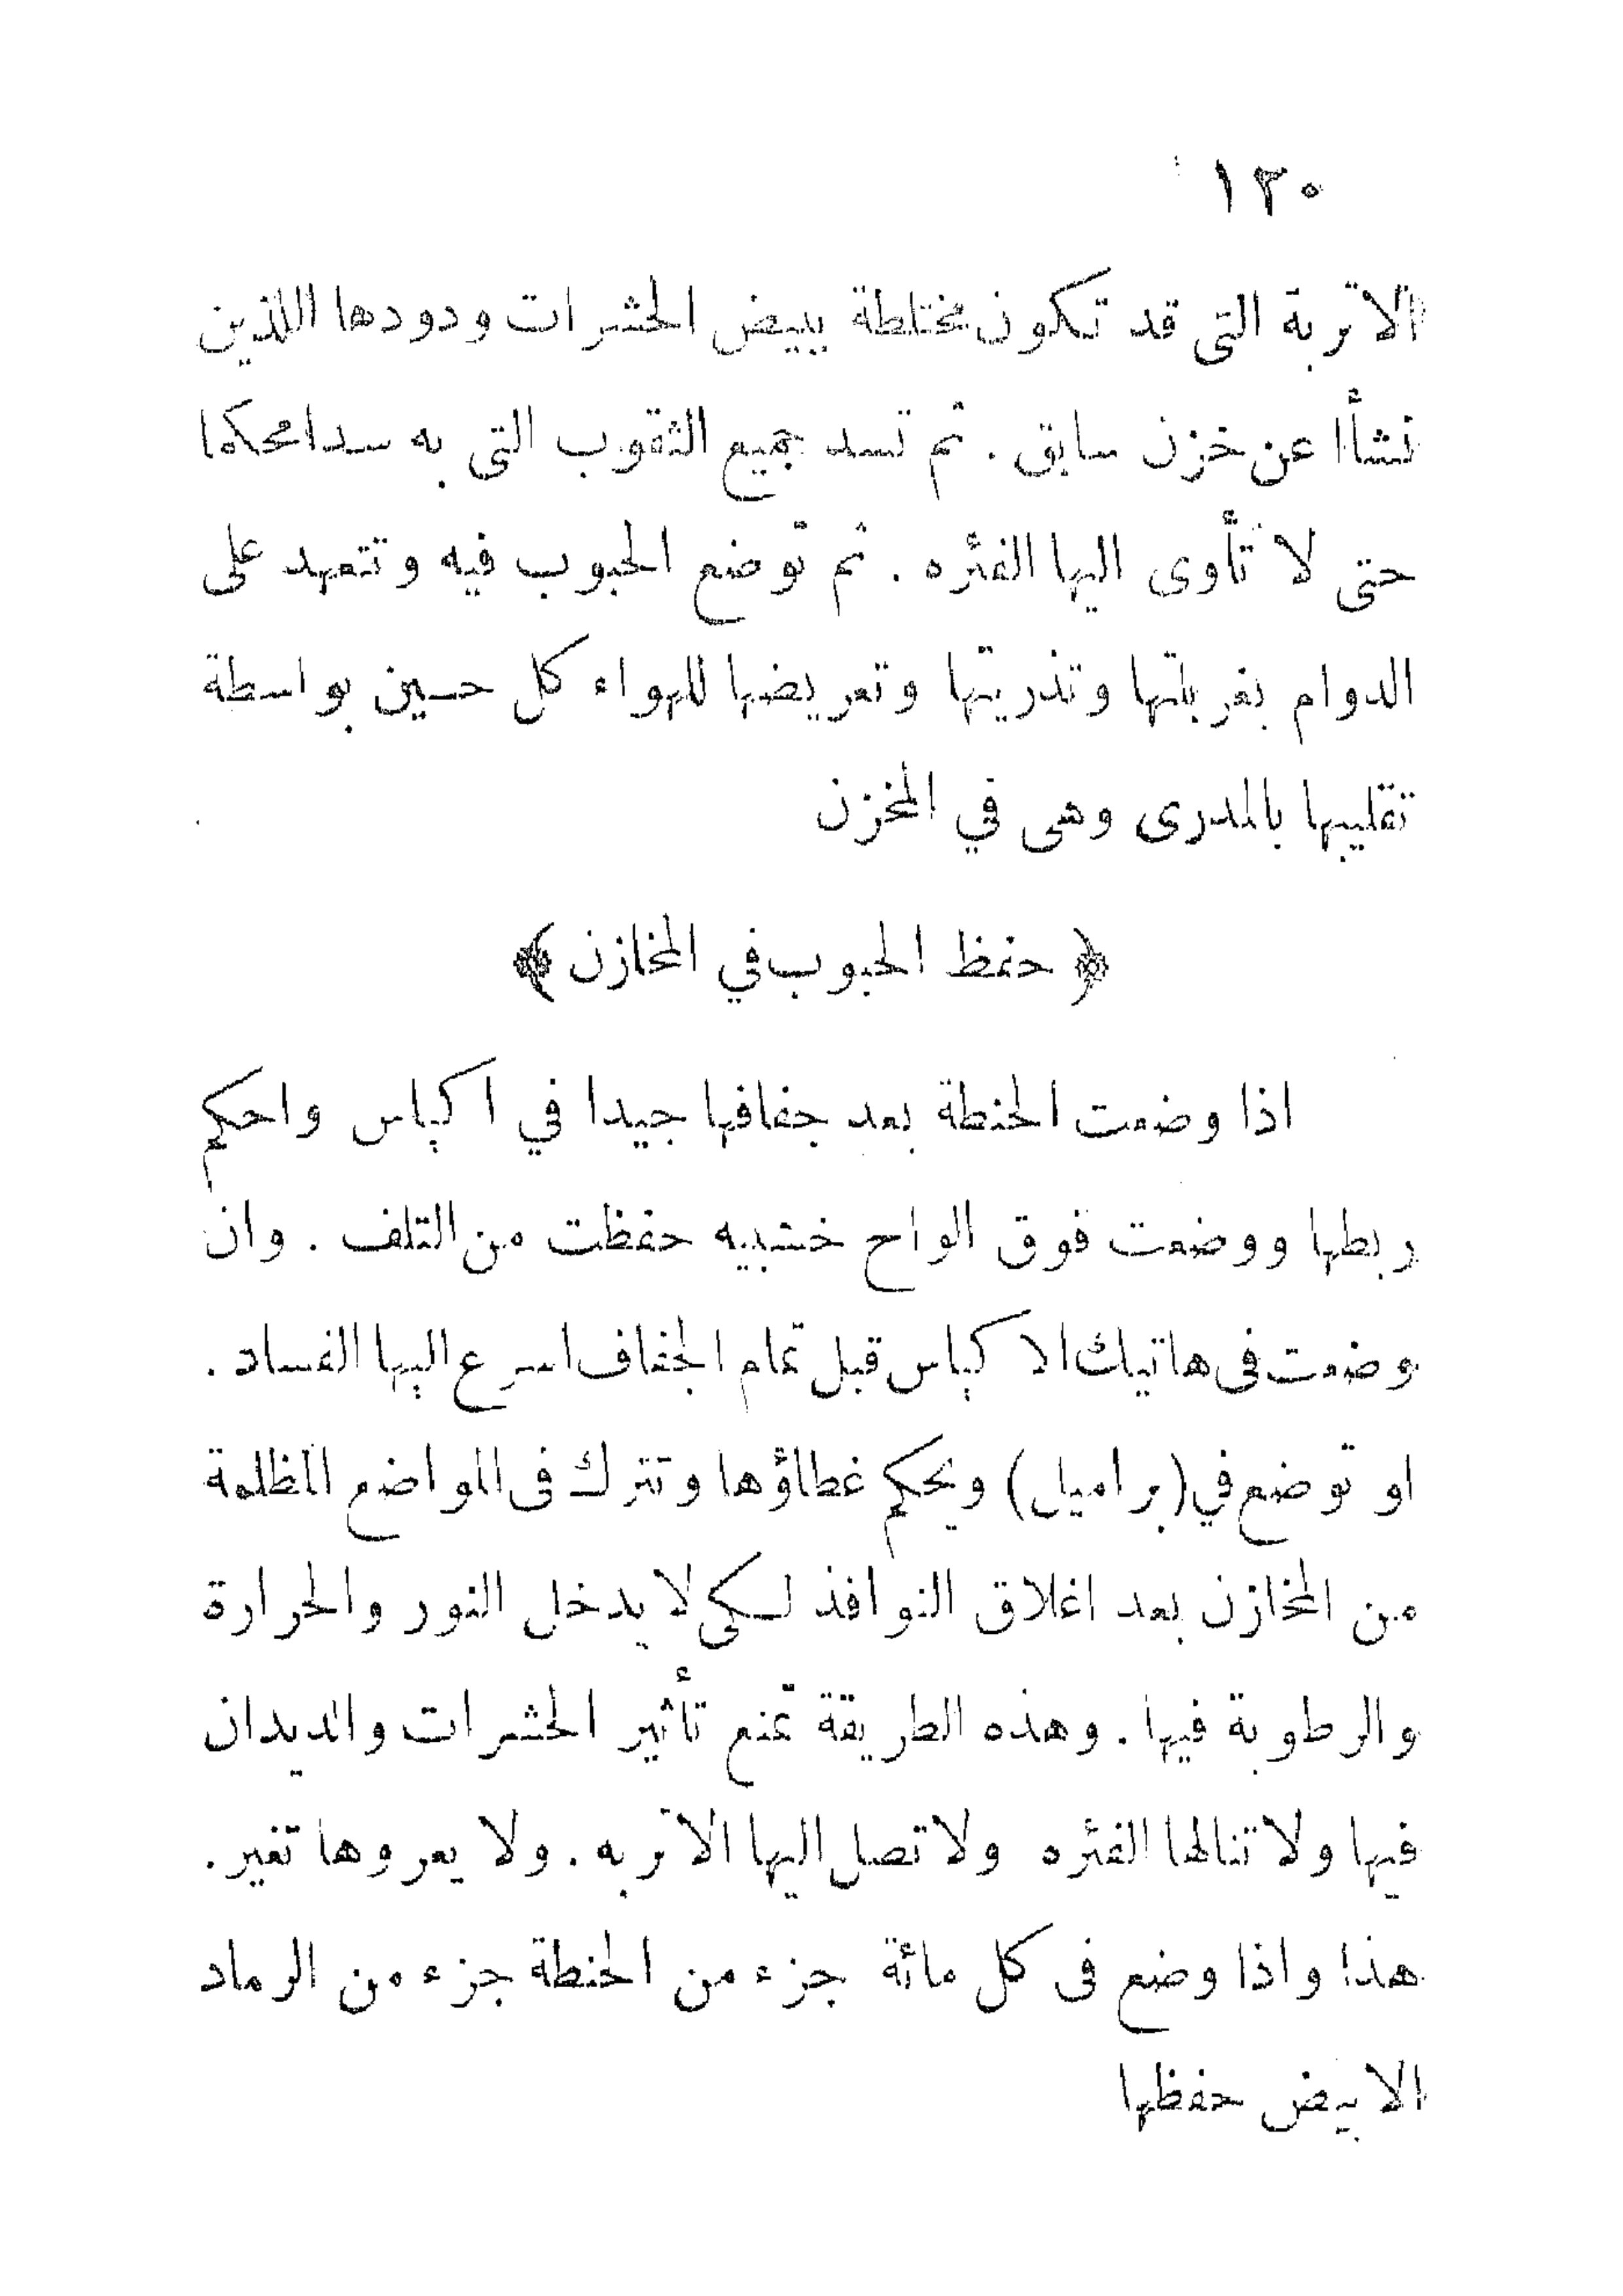 ١٣٠
الاتربة التى قد تكون مختلطة ببيض الحشرات ودودها اللذين
نشأا عن خزن سابق . ثم تسد جميع الثقوب التى به سدا محكما
حتى لا تأوى اليها الفئره . ثم توضع الحبوب فيه وتتعهد على
الدوام بغربلتها وتذريتها وتعريضها للهواء كل حين بواسطة
تقليبها بالمدرى وهى في المخزن
﴿ حفظ الحبوب في المخازن ﴾
اذا وضعت الحنطة بعد جفافها جيدا في اكياس واحكم
ربطها ووضعت فوق الواح خشبيه حفظت من التلف . وان
وضعت فى هاتيك الاكياس قبل تمام الجفاف اسرع اليها الفساد .
او توضع في (براميل) ويحكم غطاؤها وتترك فى المواضع المظلمة
من المخازن بعد اغلاق النوافذ لكى لا يدخل النور والحرارة
والرطوبة فيها . وهذه الطريقة تمنع تأثير الحشرات والديدان
فيها ولا تنالها الفئره ولا تصل اليها الاتربه . ولا يعروها تغير .
هذا واذا وضع فى كل مائة جزء من الحنطة جزء من الرماد
الابيض حفظها